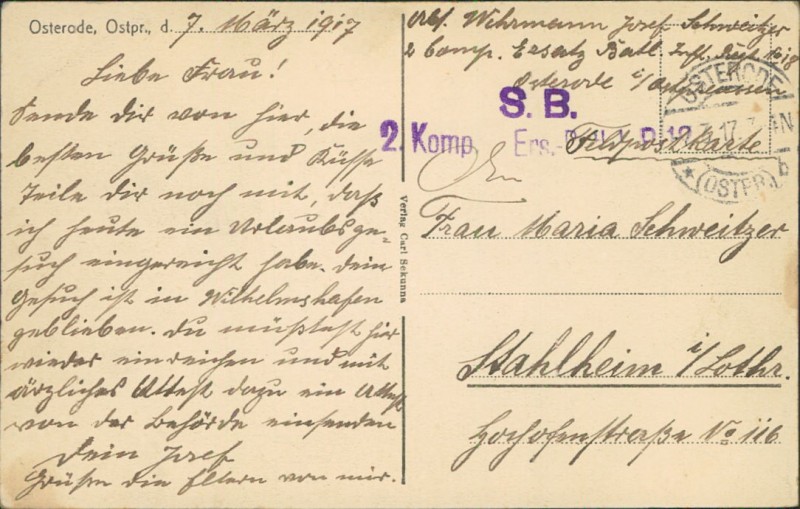 Osterode, Ostpr., d. 7. März 1917
Liebe Frau!
Sende dir von hier, die
besten Grüße und Küsse
Teile dir noch mit, daß
ich heute ein Urlaubsge-
such eingereicht habe. Dein
Gesuch ist in Wilhelmshafen
geblieben. Du müßtest hier
wieder einreichen und mit
ärzliches Attest dazu ein Attest
von der Behörde einsenden
Dein Josef
Grüße die Eltern von mir.
Verlag Carl Sekunna
Wehrmann Josef Schweitzer
2 Comp. Ersatz Batl. Inft. Regt. No 18
Osterode i/Ostpreussen
S. B.
2. Komp. Ers.-
Feldpostkarte
OSTERODE
17
(OSTPR.)
b
An
Frau Maria Schweitzer
Stahlheim i/Lothr.
Hochofenstraße No 116